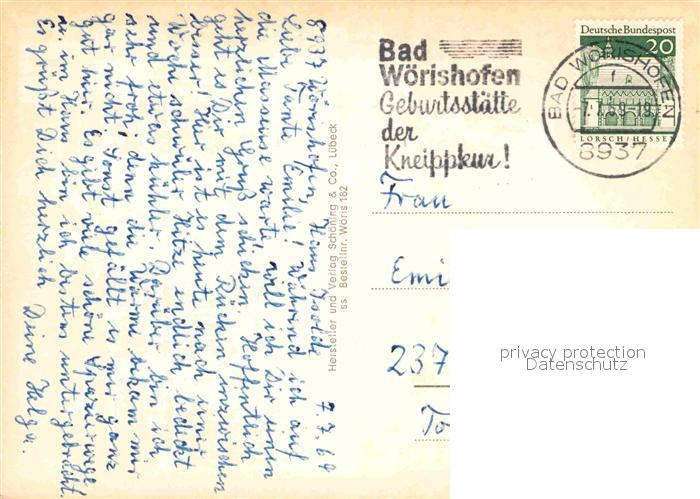 8937 Wörishofen, Haus Isolde 7.7.69
Liebe Tante Emilie! Während ich auf
die Masseuse warte, will ich Dir einen
herzlichen Gruß schicken. Hoffentlich
geht es Dir mit dem Rücken inzwischen
besser! Hier ist es heute nach einer
Woche schwüler Hitze endlich bedeckt
und etwas kühler. Darüber bin ich
sehr froh, denn die Wärme bekam mir
gar nicht. Sonst gefällt es mir ganz
gut hier. Es gibt viele schöne Spazierwege
u. im Haus bin ich bestens untergebracht.
Es grüßt Dich herzlich Deine Helga.
Hersteller und Verlag Schöning & Co., Lübeck
ss Bestellnr. Wöris 182
Bad
Wörishofen
Geburtsstätte
der
Kneippkur!
Deutsche Bundespost
20
LORSCH/HESSEN
BAD WÖRISHOFEN
f
8937
Frau
Emi
237
privacy protection
Datenschutz